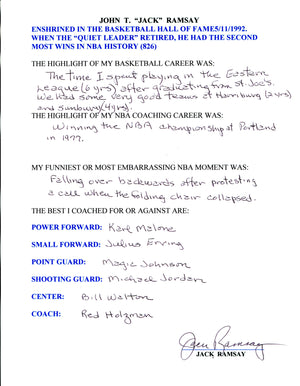 JOHN T. "JACK" RAMSAY
ENSHRINED IN THE BASKETBALL HALL OF FAME5/11/1992.
WHEN THE "QUIET LEADER" RETIRED, HE HAD THE SECOND
MOST WINS IN NBA HISTORY (826)
THE HIGHLIGHT OF MY BASKETBALL CAREER WAS:
The time I spent playing in the Eastern
League (6 yrs) after graduating from St. Joe's.
We had some very good teams at Harrisburg (2 yrs)
and Sunbury (4 yrs).
THE HIGHLIGHT OF MY NBA COACHING CAREER WAS:
Winning the NBA championship at Portland
in 1977.
MY FUNNIEST OR MOST EMBARRASSING NBA MOMENT WAS:
Falling over backwards after protesting
a call when the folding chair collapsed.
THE BEST I COACHED FOR OR AGAINST ARE:
POWER FORWARD: Karl Malone
SMALL FORWARD: Julius Erving
POINT GUARD: Magic Johnson
SHOOTING GUARD: Michael Jordan
CENTER: Bill Walton
COACH: Red Holzman
Jack Ramsay
JACK RAMSAY